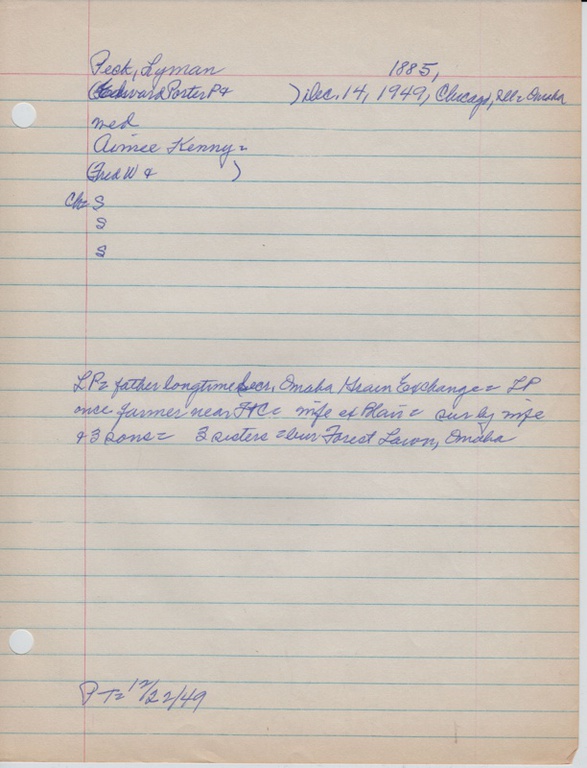 Peck, Lyman 1885,
(Edward Porter P & ) Dec. 14, 1949, Chicago, Ill = Omaha
med
Aimee Kenny =
(Fred W & )
Ch = S
S
S
LP = father longtime secr, Omaha Grain Exchange = LP
once farmer near = wife of Plain = sur by wife
& 3 sons = 3 sisters = bur Forest Lawn, Omaha
PT = 12/22/49